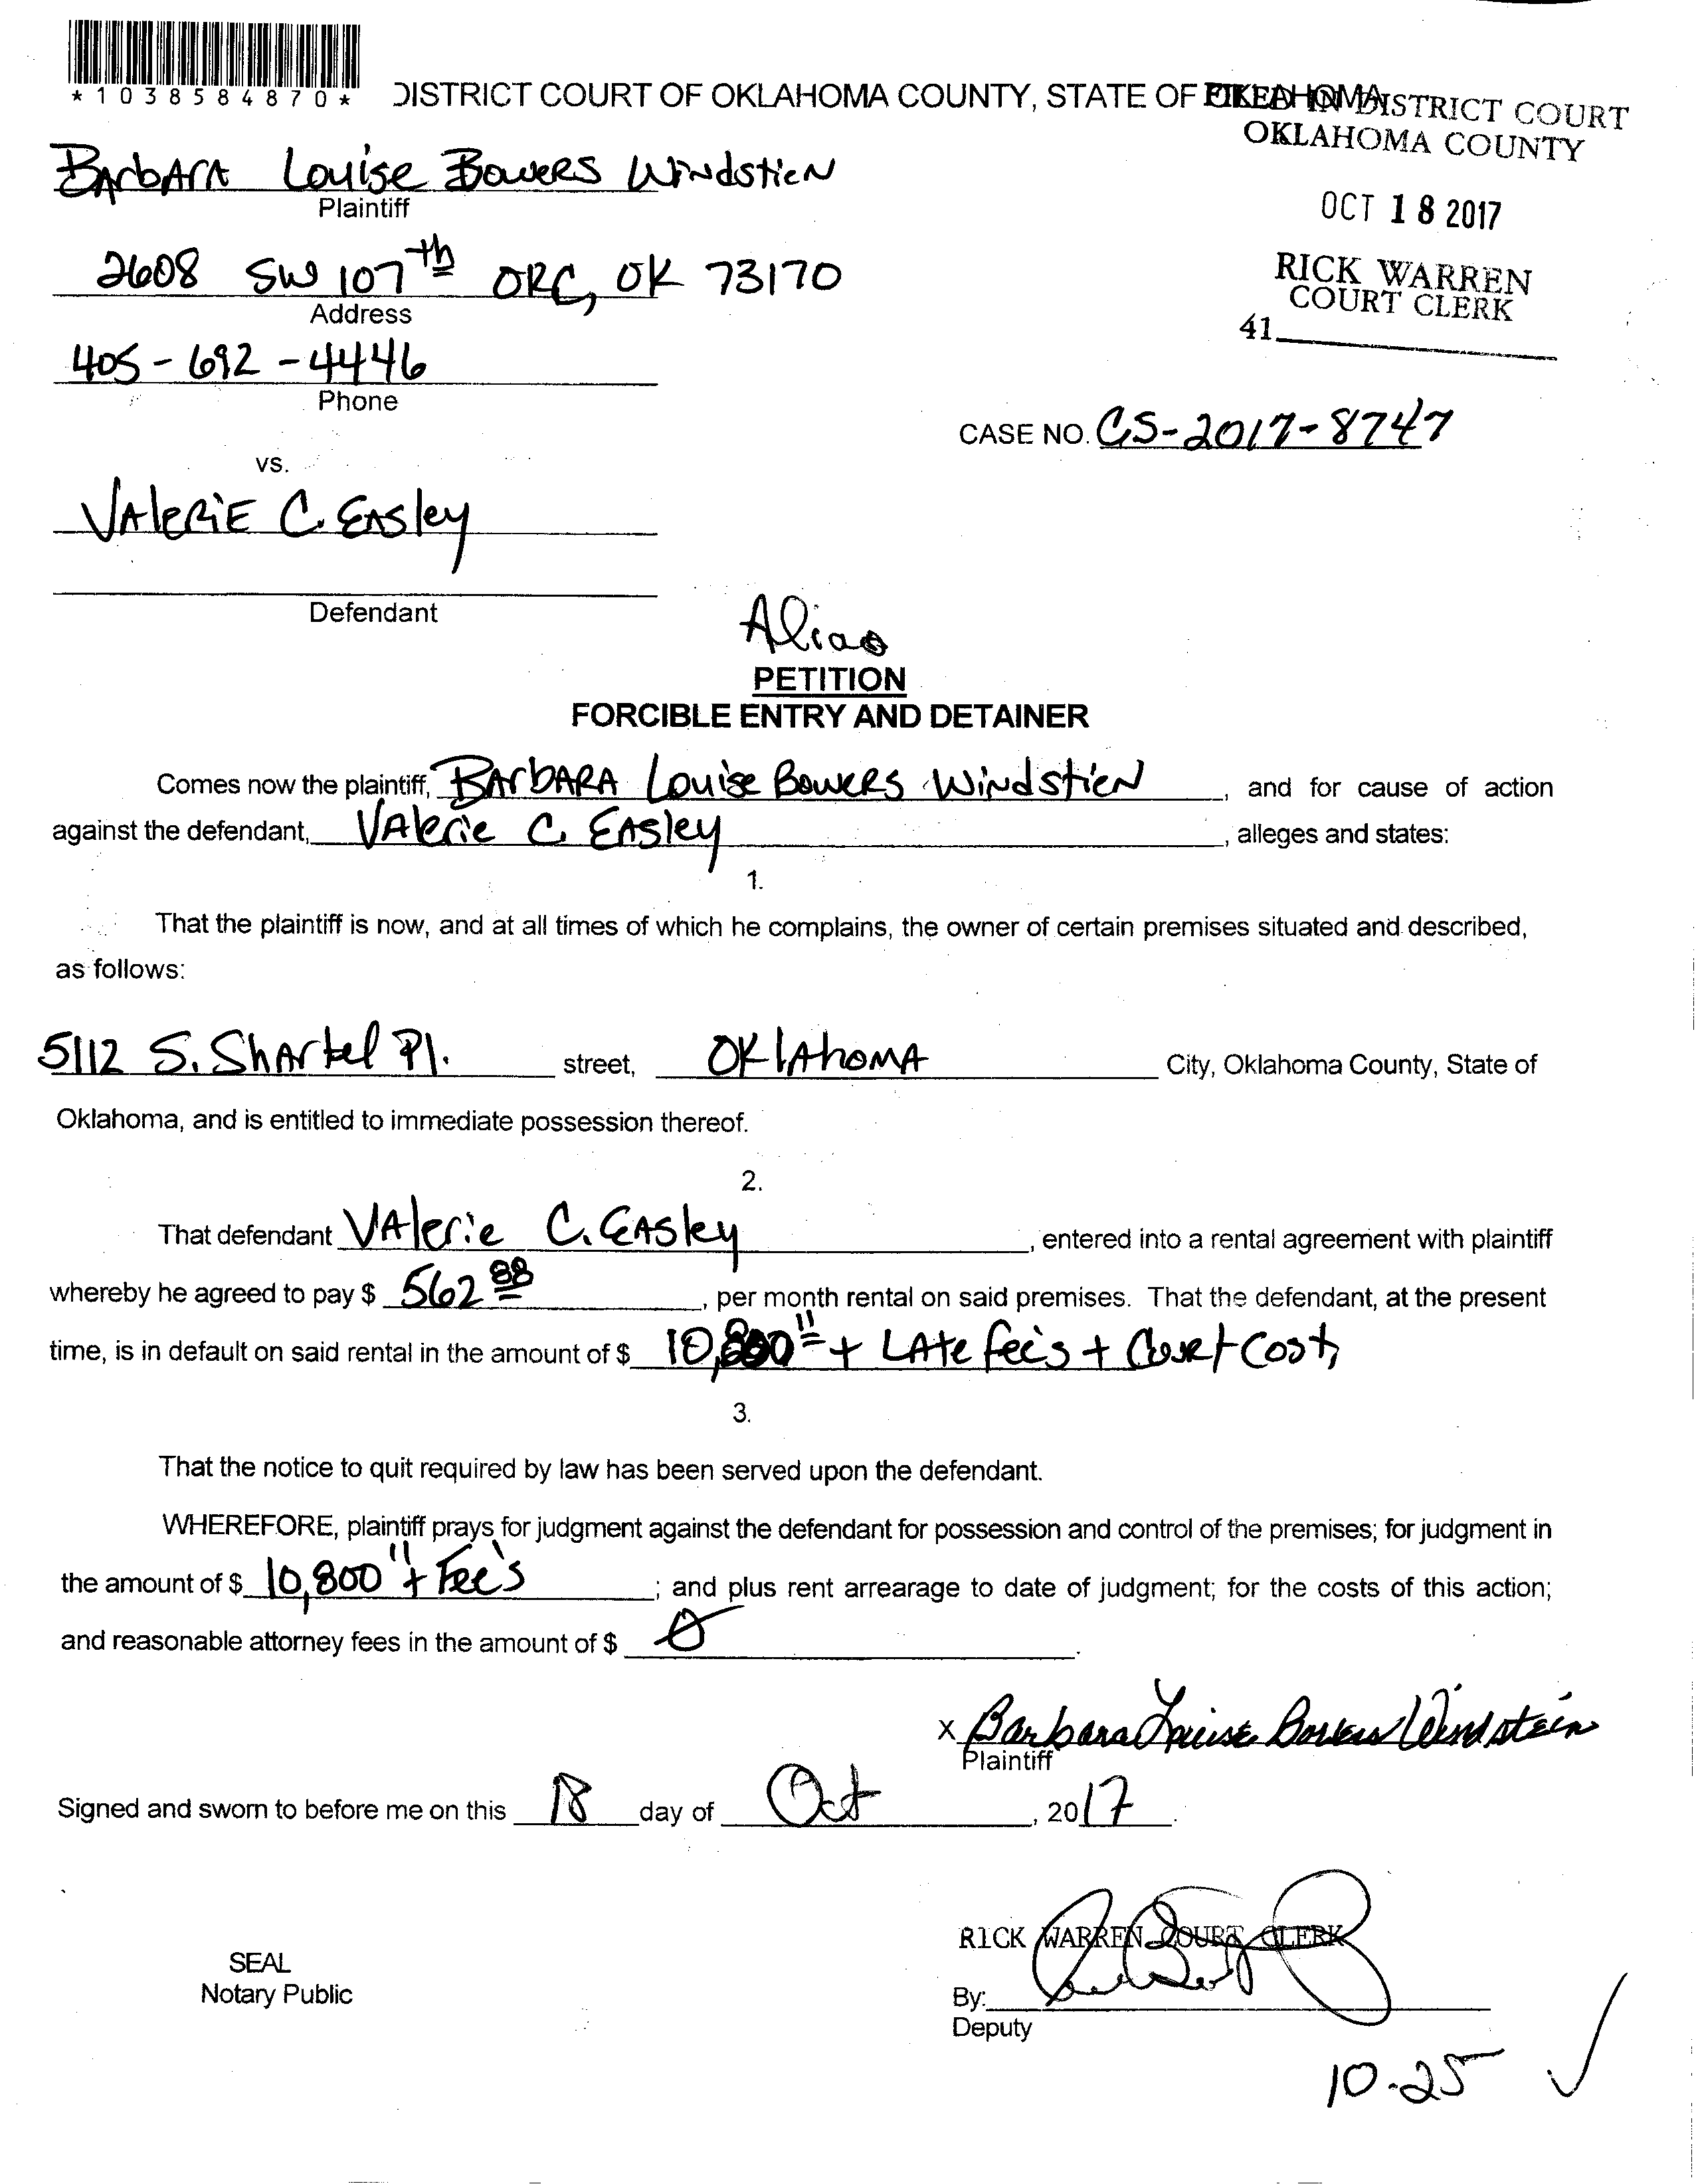 *1038584870*
DISTRICT COURT OF OKLAHOMA COUNTY, STATE OF OKLAHOMA
FILED IN DISTRICT COURT
OKLAHOMA COUNTY
OCT 18 2017
RICK WARREN
COURT CLERK
41
BArbArA Louise Bowers Windstien
Plaintiff
2608 SW 107th OKC, OK 73170
Address
405-692-4446
Phone
CASE NO. CS-2017-8747
vs.
VAleRiE C. EAsley
Defendant
Alias
PETITION
FORCIBLE ENTRY AND DETAINER
Comes now the plaintiff, BArbARA Louise Bowers Windstien, and for cause of action
against the defendant, VAlerie C. EAsley, alleges and states:
1.
That the plaintiff is now, and at all times of which he complains, the owner of certain premises situated and described,
as follows:
5112 S. ShArtel Pl. street, OklAhomA City, Oklahoma County, State of
Oklahoma, and is entitled to immediate possession thereof.
2.
That defendant VAlerie C. EAsley, entered into a rental agreement with plaintiff
whereby he agreed to pay $ 562 88, per month rental on said premises. That the defendant, at the present
time, is in default on said rental in the amount of $ 10,800 11 + LAte fee's + Court Costs
3.
That the notice to quit required by law has been served upon the defendant.
WHEREFORE, plaintiff prays for judgment against the defendant for possession and control of the premises; for judgment in
the amount of $ 10,800 11 + Fee's; and plus rent arrearage to date of judgment; for the costs of this action;
and reasonable attorney fees in the amount of $ 0.
x Barbara Louise Bowers Windstein
Plaintiff
Signed and sworn to before me on this 18 day of Oct, 2017.
RICK WARREN COURT CLERK
SEAL
Notary Public
By:
Deputy
10-25